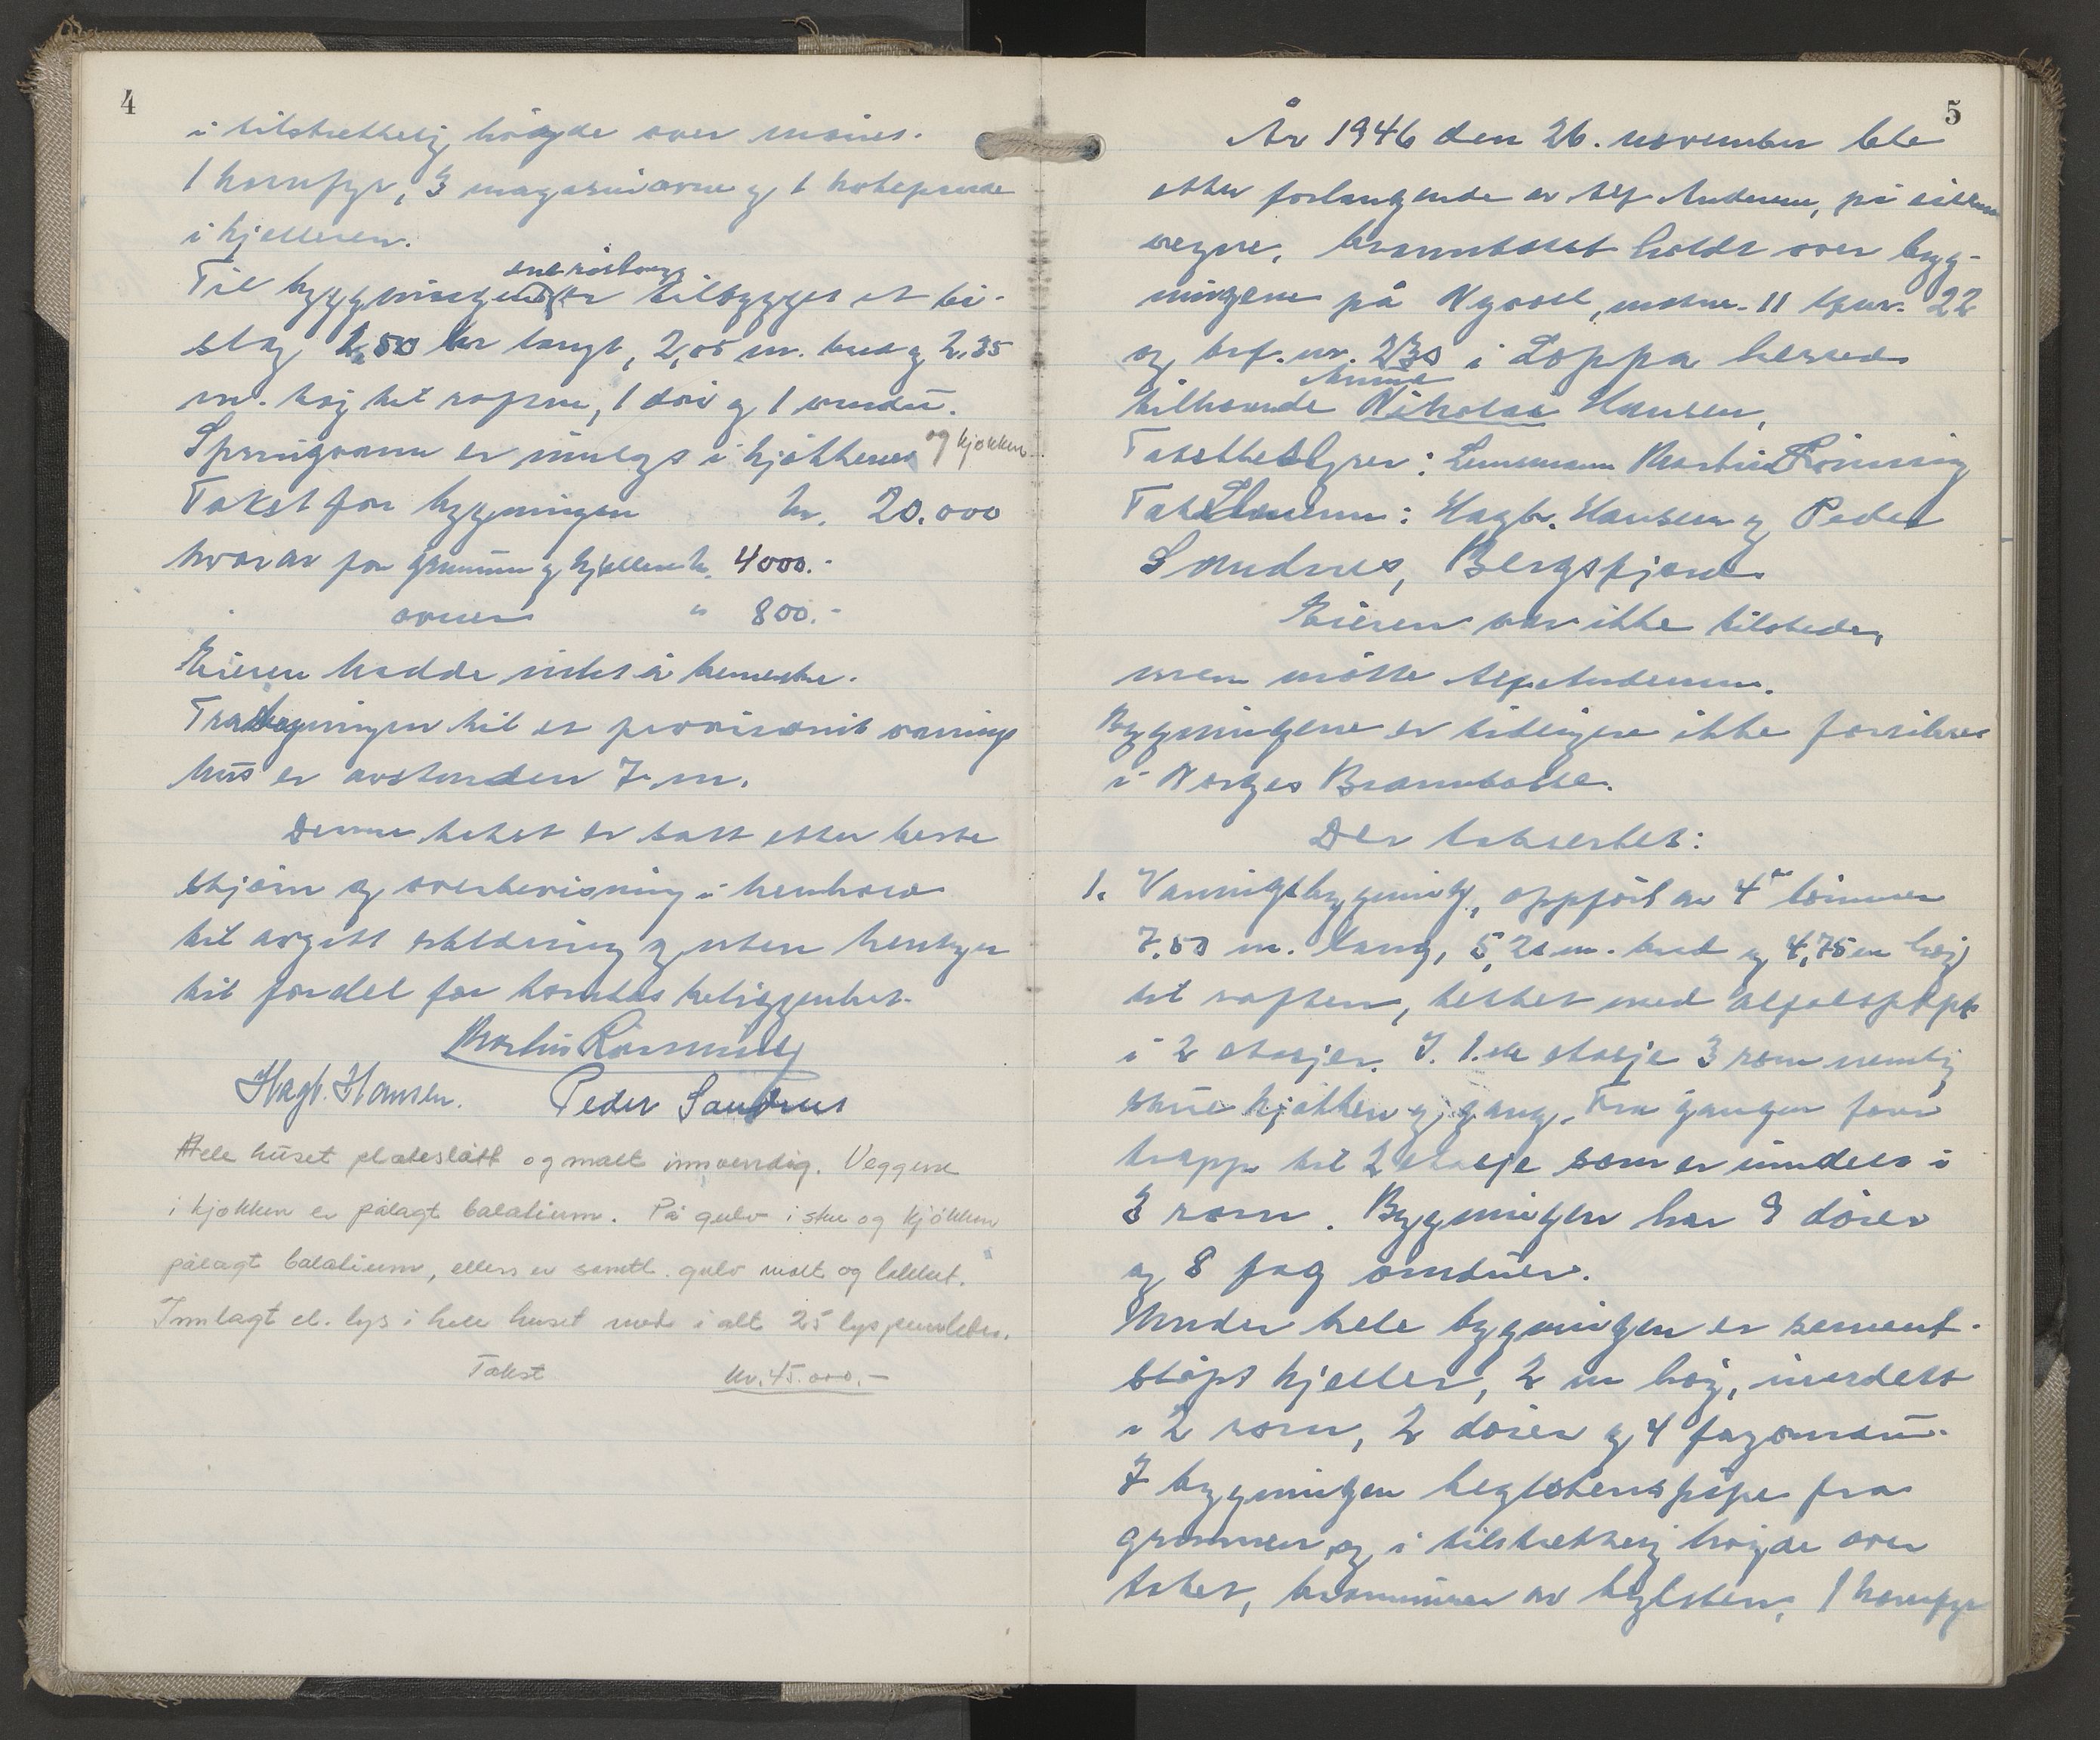 4
i tilstrekkelig høyde over mønet.
1 komfyr, 3 magasinovne og 1 kokegrude
i kjelleren.
ene røstvegg
Til bygningen er tilbygget et bi-
slag 2,50 m langt, 2,05 m. bred og 2,35
m. høy til rafene, 1 dør og 1 vindu.
Springvann er innlagt i kjelleren og kjøkken
Takst for bygningen kr. 20.000
hvorav for grunnmur og kjellere kr. 4000.-
" ovner " 800.-
Eieren hadde intet å bemerke.
Fra bygningen til et provisorisk vånings
hus er avstanden 7 m.
Denne takst er tatt etter beste
skjønn og overbevisning i henhold
til avgitt erklæring og uten hensyn
til fordel for tomtas beliggenhet.
Martin Rønning
Hagb. Hansen. Peder Sandnes
Hele huset plateslått og malt innvendig. Veggene
i kjøkken er pålagt balatium. På gulv i stue og kjøkken
pålagt balatium, ellers er samtl. gulv malt og lakket.
Innlagt el. lys i hele huset med i alt 25 lyspunkter.
Takst kr. 45.000.-
5
År 1946 den 26. november ble
etter forlangende av Alf Andersen, på eierens
vegne, branntakst holdt over byg-
ningene på Nyvoll, matr. 11 br.nr. 22
og brf. nr. i Loppa herred
Anna
tilhørende Nikolai Hansen,
Takstbestyrer: Lensmann Martin Rønning
Takstmenn: Hagb. Hansen og Peder
Sandnes, Bergsfjord.
Eieren var ikke tilstede,
men møtte Alf Andersen.
Bygningene er tidligere ikke forsikret
i Norges Brannkasse.
Der taksertes:
1. Våningsbygning, oppført av 4" tømmer
7,50 m. lang, 5,20 m. bred og 4,75 m høy
til raften, tekket med asfaltpapp
i 2 etasjer. I 1.ste etasje 3 rom nemlig
stue kjøkken og gang. Fra gangen fører
trapp til 2 etasje som er inndelt i
3 rom. Bygningen har 9 dører
og 8 fag vinduer.
Under hele bygningen er sement-
støpt kjeller, 2 m høy, inndelt
i 2 rom, 2 dører og 4 fag vindu.
I bygningen teglstenspipe fra
grunnen og i tilstrekkelig høyde over
taket, brannmurer av teglsten. 1 komfyr